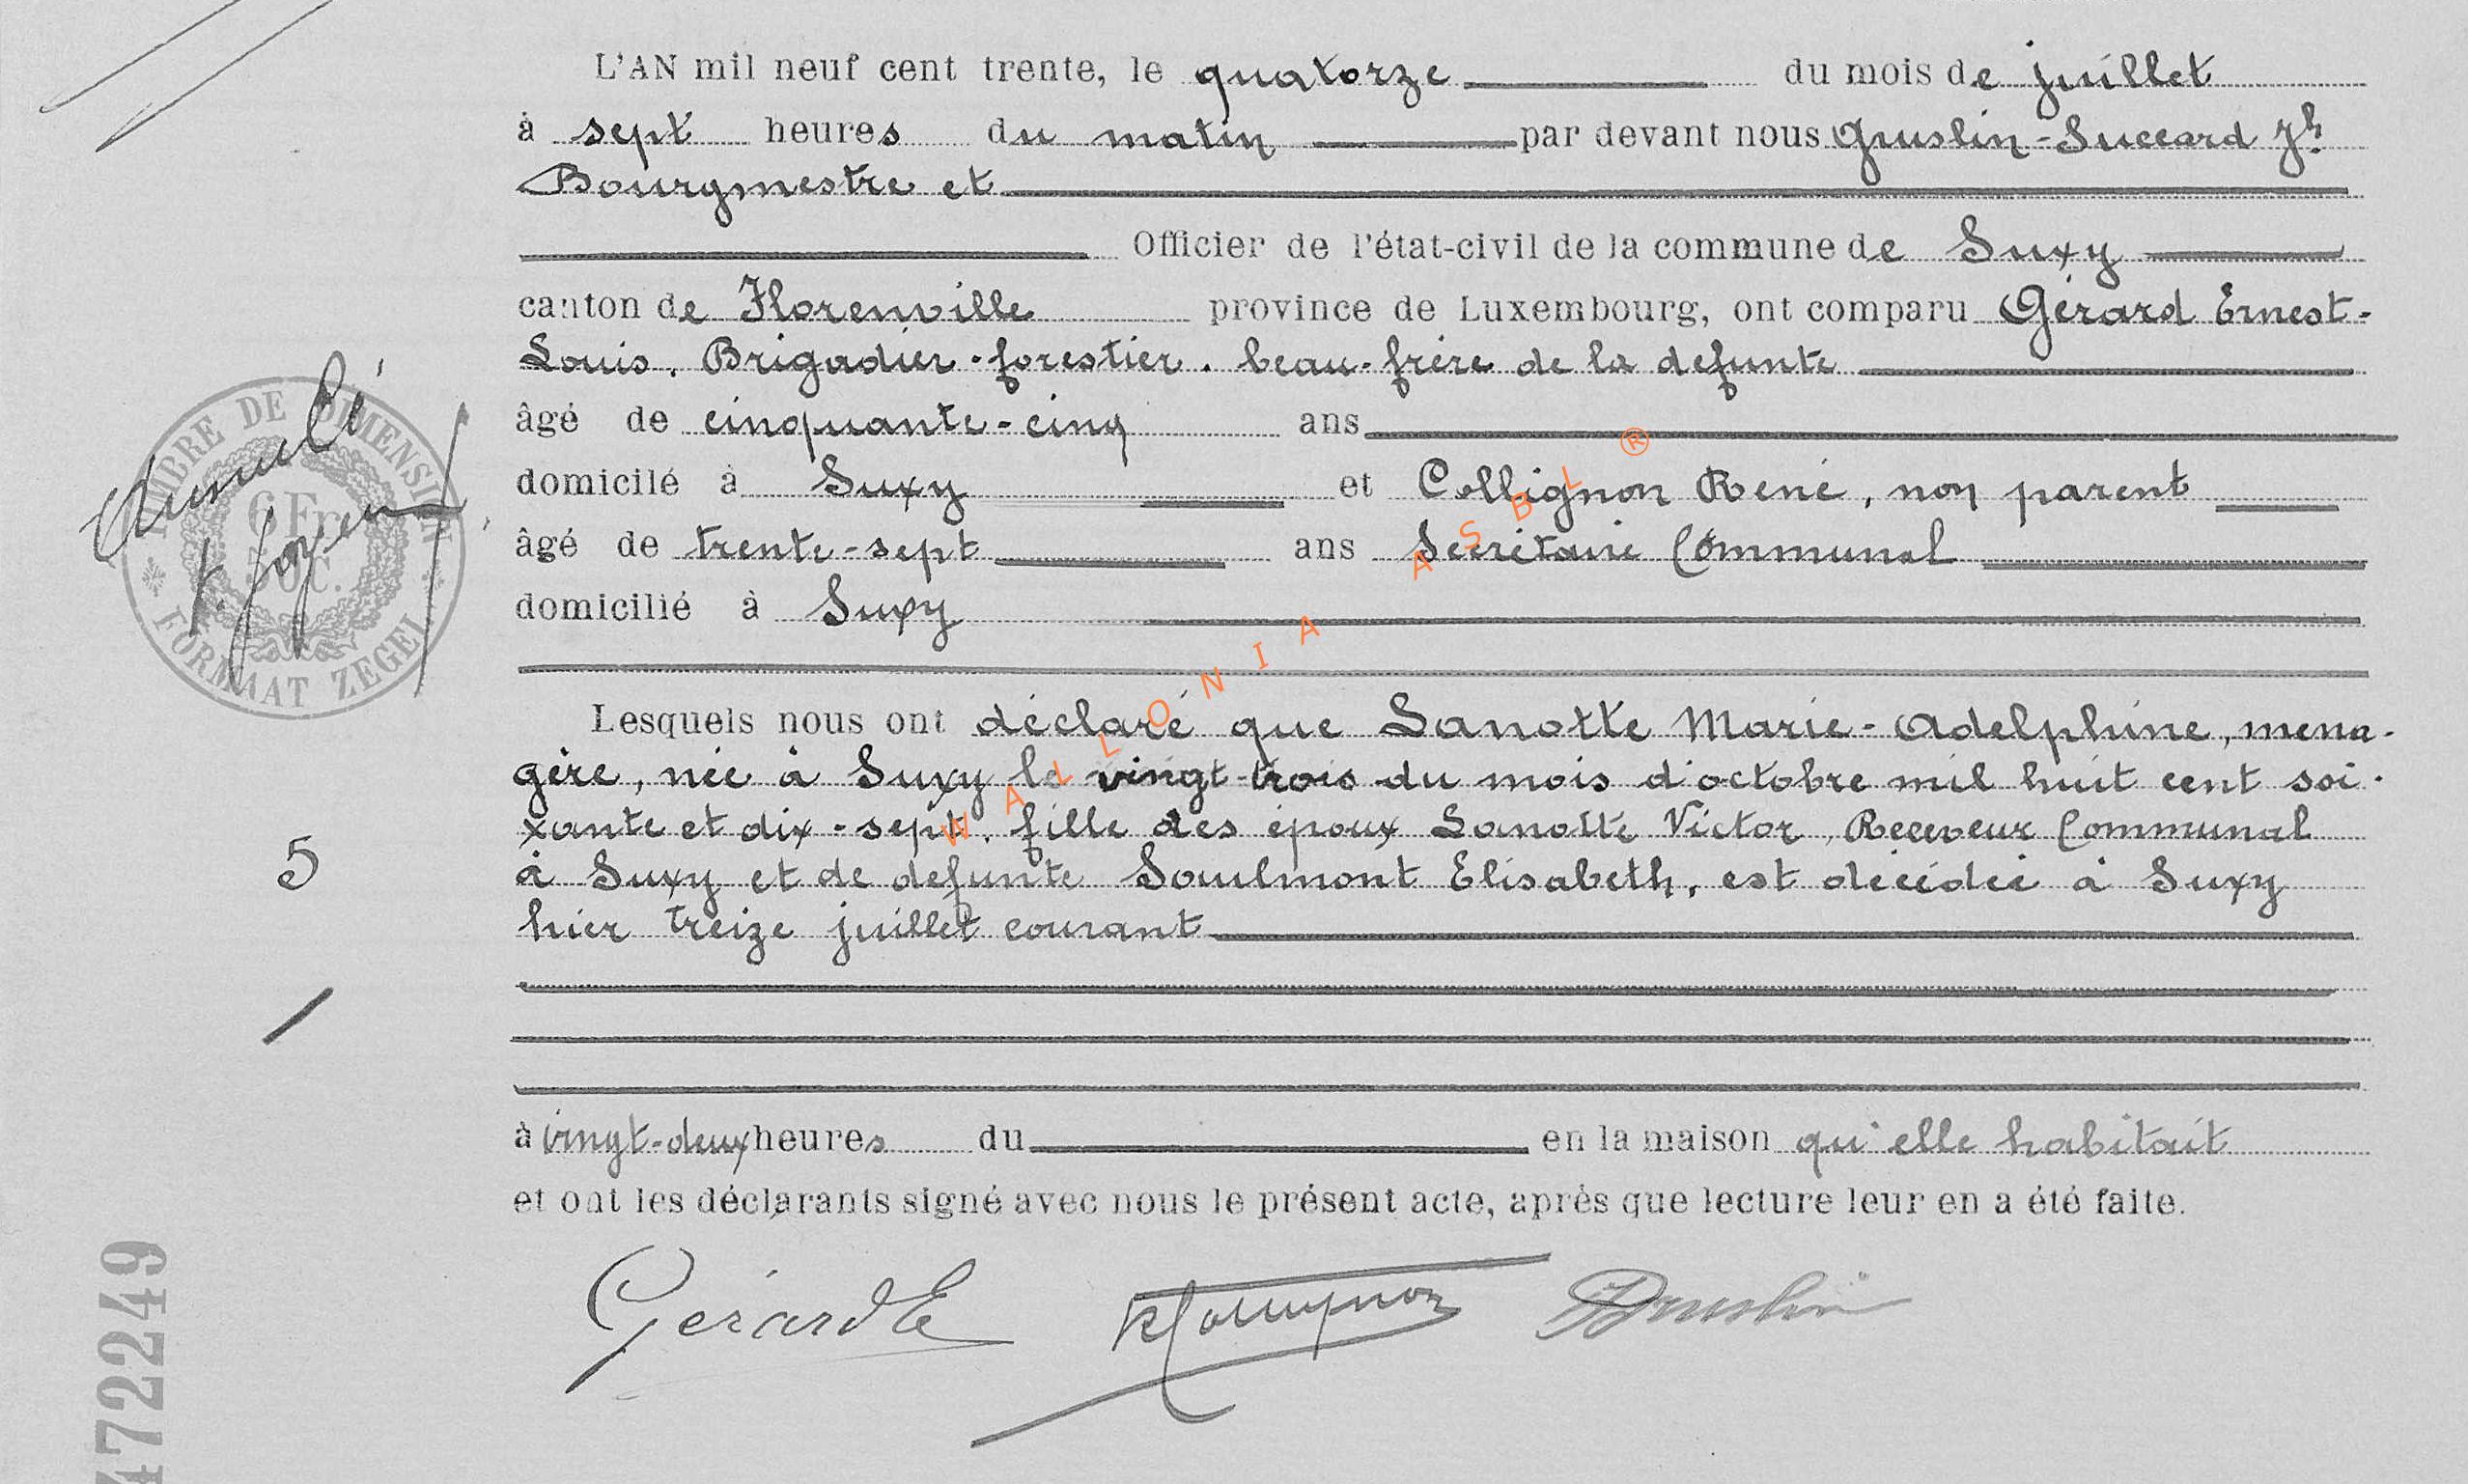 L'AN mil neuf cent trente, le quatorze du mois de juillet
à sept heures du matin par devant nous Gruslin-Succard Jh
Bourgmestre et
Officier de l'état-civil de la commune de Suxy
canton de Florenville province de Luxembourg, ont comparu Gérard Ernest-
Louis, Brigadier-forestier, beau-frère de la defunte
âgé de cinquante-cinq ans
domicilé à Suxy et Collignon René, non parent
âgé de trente-sept ans Secrétaire Communal
domicilié à Suxy
Lesquels nous ont déclaré que Lanotte Marie-Adelphine, mena-
gère, née à Suxy le vingt-trois du mois d'octobre mil huit cent soi-
xante et dix-sept, fille des époux Lanotte Victor, Receveur Communal
à Suxy et de defunte Soulmont Elisabeth, est décédée à Suxy
hier treize juillet courant
à vingt-deux heures du en la maison qu'elle habitait
et ont les déclarants signé avec nous le présent acte, après que lecture leur en a été faite.
Gérard E R Collignon Gruslin
Annulé
TIMBRE DE DIMENSION
6 Fr.
50 C.
FORMAAT ZEGEL
5
472249
WALLONIA ASBL ®